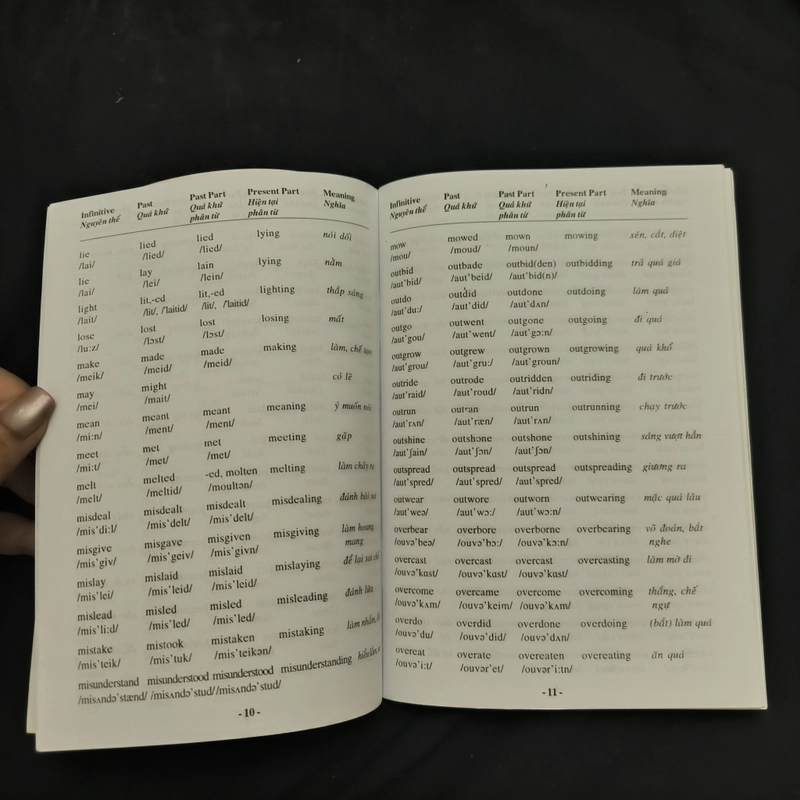 Infinitive Past Past Part Present Part Meaning
Nguyên thể Quá khứ Quá khứ Hiện tại Nghĩa
phân từ phân từ
lie lied lied lying nói dối
/lai/ /lied/ /lied/
lie lay lain lying nằm
/lai/ /lei/ /lein/
light lit,-ed lit,-ed lighting thắp sáng
/lait/ /lit/, /'laitid/ /lit/, /'laitid/
lose lost lost losing mất
/lu:z/ /lɔst/ /lɔst/
make made made making làm, chế
/meik/ /meid/ /meid/
may might có lẽ
/mei/ /mait/
mean meant meant meaning ý muốn nói
/mi:n/ /ment/ /ment/
meet met met meeting gặp
/mi:t/ /met/ /met/
melt melted -ed, molten melting làm chảy ra
/melt/ /meltid/ /moultən/
misdeal misdealt misdealt misdealing đánh bài sai
/mis'di:l/ /mis'delt/ /mis'delt/
misgive misgave misgiven misgiving làm hoang
/mis'giv/ /mis'geiv/ /mis'givn/ mang
mislay mislaid mislaid mislaying để lại sai chỗ
/mis'lei/ /mis'leid/ /mis'leid/
mislead misled misled misleading đánh lừa
/mis'li:d/ /mis'led/ /mis'led/
mistake mistook mistaken mistaking làm nhầm,
/mis'teik/ /mis'tuk/ /mis'teikən/
misunderstand misunderstood misunderstood misunderstanding hiểu lầm,
/misʌndə'stænd/ /misʌndə'stud/ /misʌndə'stud/
- 10 -
Infinitive Past Past Part Present Part Meaning
Nguyên thể Quá khứ Quá khứ Hiện tại Nghĩa
phân từ phân từ
mow mowed mown mowing xén, cắt, diệt
/mou/ /moud/ /moun/
outbid outbade outbid(den) outbidding trả quá giá
/aut'bid/ /aut'beid/ /aut'bid(n)/
outdo outdid outdone outdoing làm quá
/aut'du:/ /aut'did/ /aut'dʌn/
outgo outwent outgone outgoing đi quá
/aut'gou/ /aut'went/ /aut'gɔ:n/
outgrow outgrew outgrown outgrowing quá khổ
/aut'grou/ /aut'gru:/ /aut'groun/
outride outrode outridden outriding đi trước
/aut'raid/ /aut'roud/ /aut'ridn/
outrun outran outrun outrunning chạy trước
/aut'rʌn/ /aut'ræn/ /aut'rʌn/
outshine outshone outshone outshining sáng vượt hẳn
/aut'ʃain/ /aut'ʃɔn/ /aut'ʃɔn/
outspread outspread outspread outspreading giương ra
/aut'spred/ /aut'spred/ /aut'spred/
outwear outwore outworn outwearing mặc quá lâu
/aut'weə/ /aut'wɔ:/ /aut'wɔ:n/
overbear overbore overborne overbearing võ đoán, bắt
/ouvə'beə/ /ouvə'bɔ:/ /ouvə'kɔ:n/ nghe
overcast overcast overcast overcasting làm mờ đi
/ouvə'kɑst/ /ouvə'kɑst/ /ouvə'kɑst/
overcome overcame overcome overcoming thắng, chế
/ouvə'kʌm/ /ouvə'keim/ /ouvə'kʌm/ ngự
overdo overdid overdone overdoing (bắt) làm quá
/ouvə'du/ /ouvə'did/ /ouvə'dʌn/
overeat overate overeaten overeating ăn quá
/ouvə'i:t/ /ouvər'et/ /ouvər'i:tn/
- 11 -